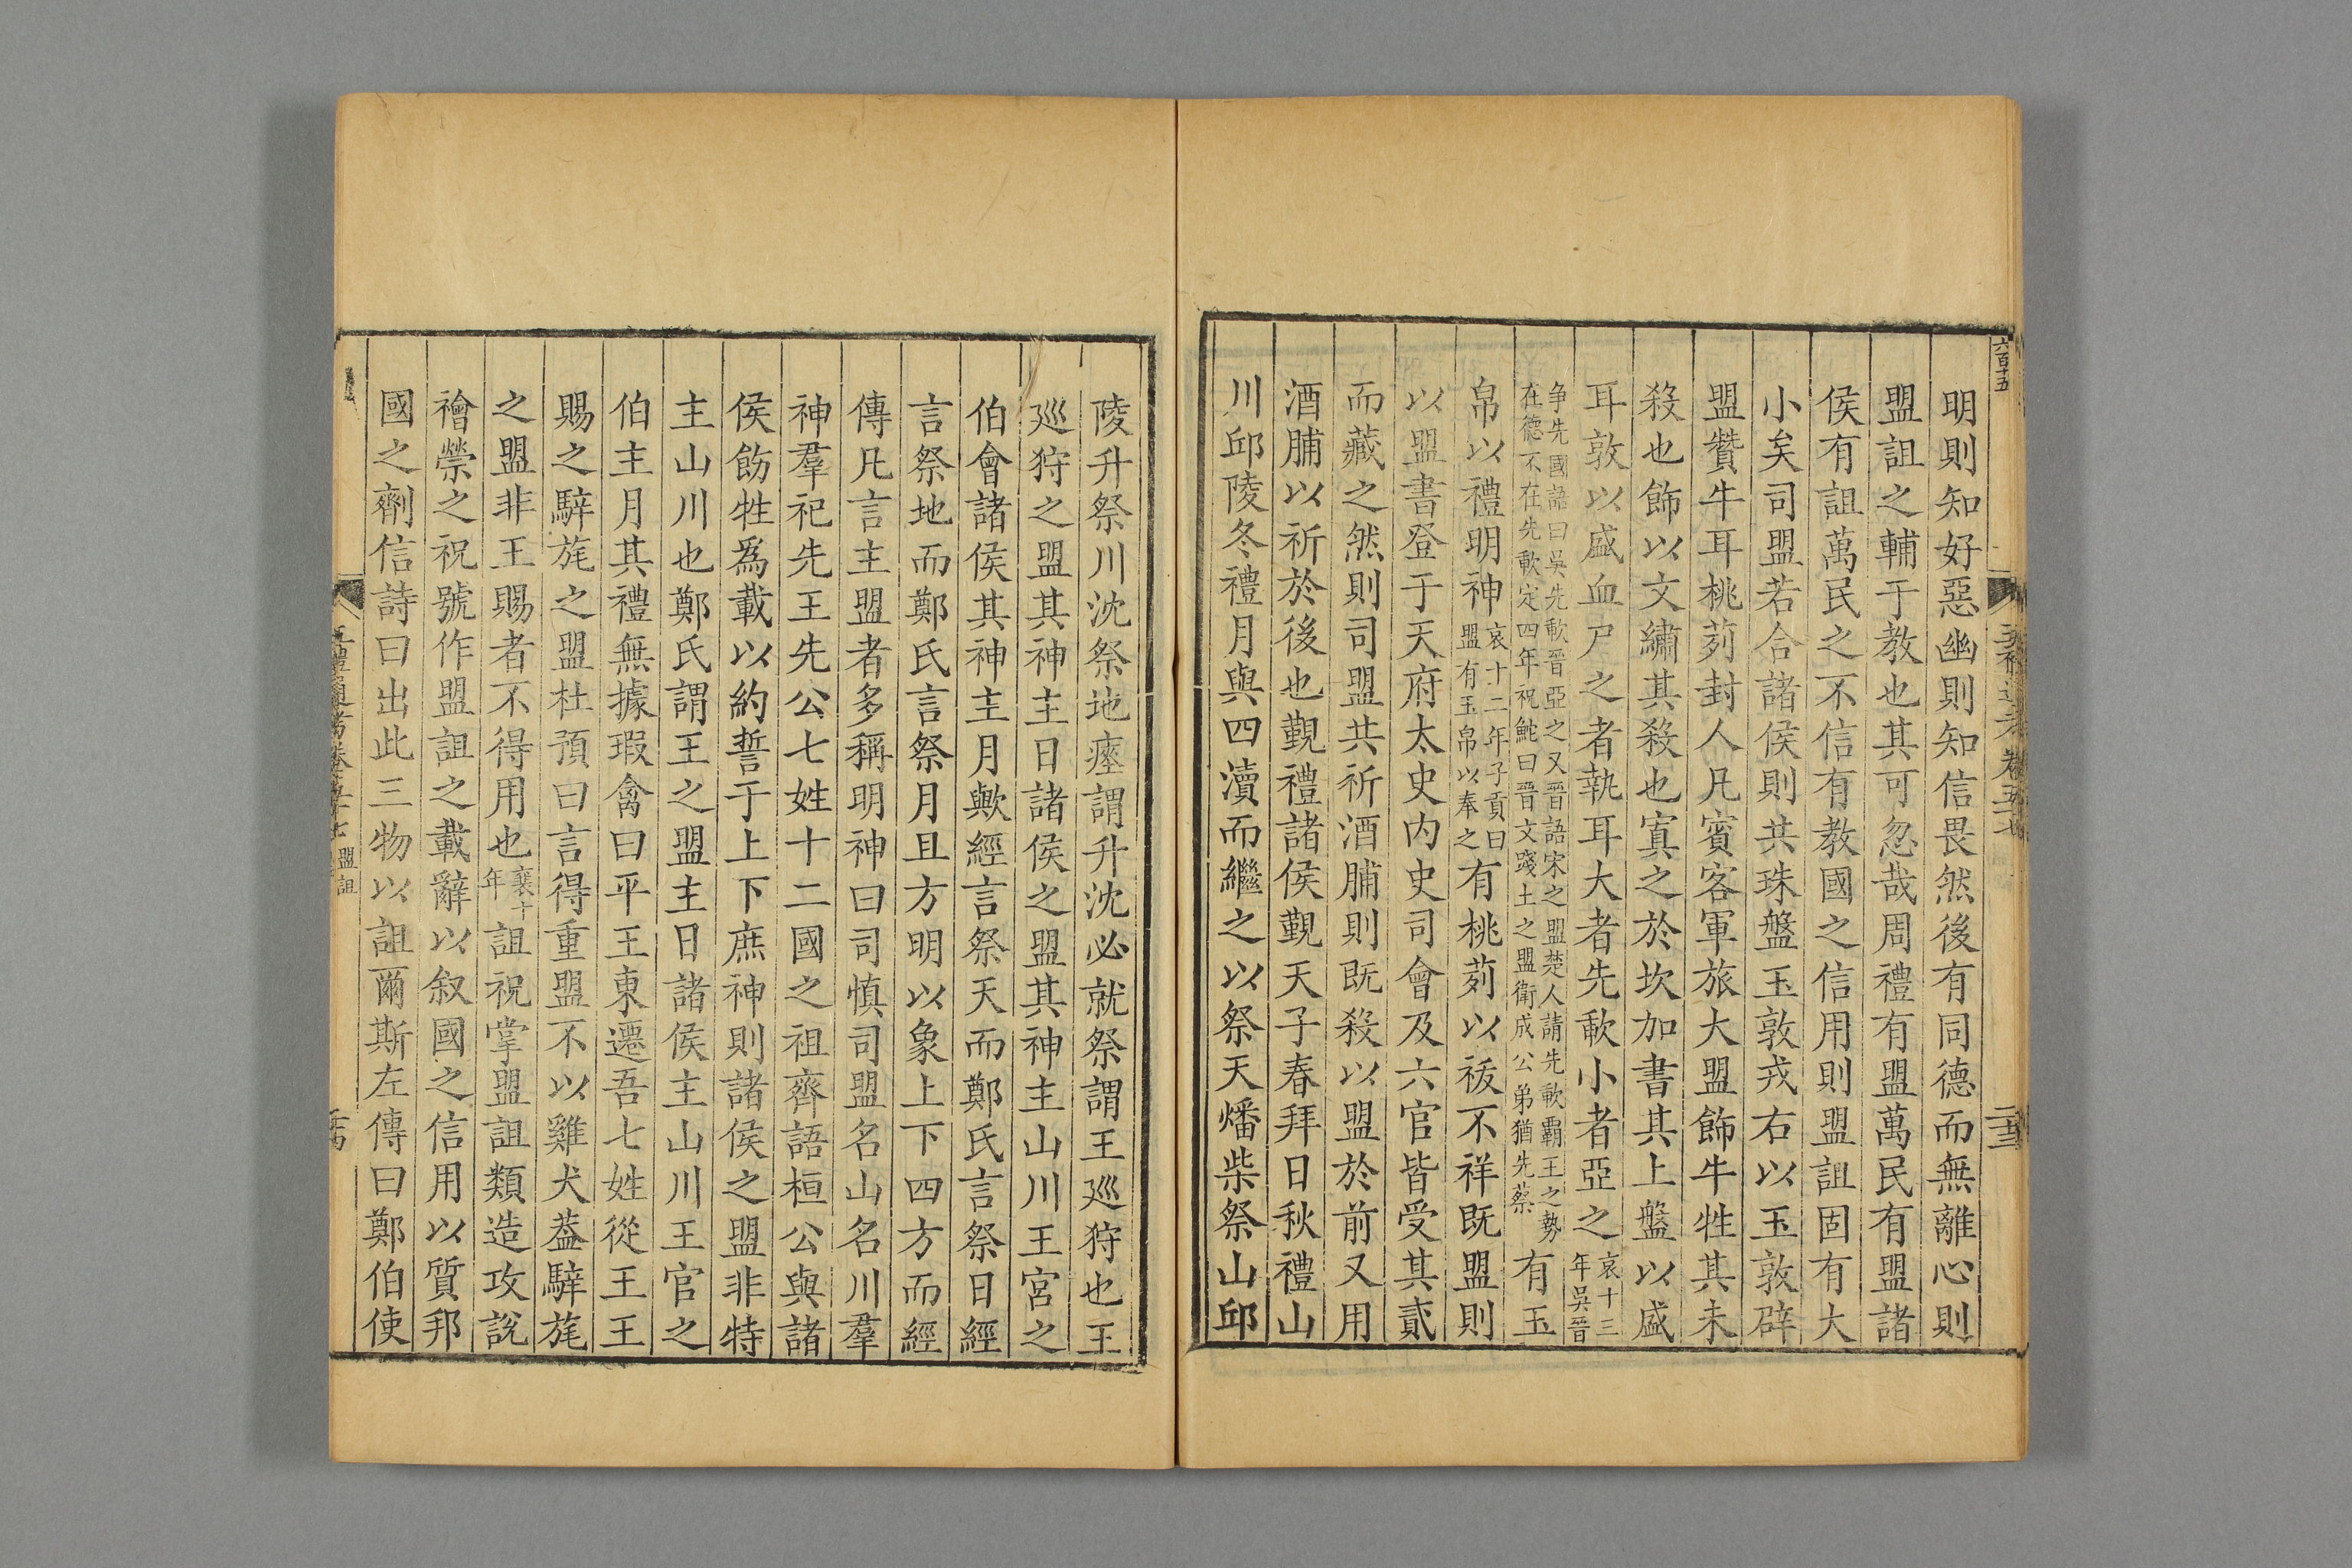 六百十五
明則知好惡幽則知信畏然後有同德而無離心則
盟詛之輔于教也其可忽哉周禮有盟萬民有盟諸
侯有詛萬民之不信有教國之信用則盟詛固有大
小矣司盟若合諸侯則共珠盤玉敦戎右以玉敦辟
盟贊牛耳桃茢封人凡賓客軍旅大盟飾牛牲其未
殺也飾以文繡其殺也寘之於坎加書其上盤以盛
耳敦以盛血尸之者執耳大者先歃小者亞之哀十三年吳晉
爭先國語曰吳先歃晉亞之又晉語宋之盟楚人請先歃覇王之勢
在德不在先歃定四年祝鮀曰晉文踐土之盟衛成公弟猶先蔡
有玉
帛以禮明神哀十二年子貢曰盟有玉帛以奉之有桃茢以祓不祥既盟則
以盟書登于天府太史内史司會及六官皆受其貳
而藏之然則司盟共祈酒脯則既殺以盟於前又用
酒脯以祈於後也覲禮諸侯覲天子春拜日秋禮山
川邱陵冬禮月與四瀆而繼之以祭天燔柴祭山邱
陵升祭川沈祭地瘞謂升沈必就祭謂王廵狩也王
廵狩之盟其神主日諸侯之盟其神主山川王宮之
伯會諸侯其神主月歟經言祭天而鄭氏言祭日經
言祭地而鄭氏言祭月且方明以象上下四方而經
傳凡言主盟者多稱明神曰司慎司盟名山名川羣
神羣祀先王先公七姓十二國之祖齊語桓公與諸
侯飭牲爲載以約誓于上下庶神則諸侯之盟非特
主山川也鄭氏謂王之盟主日諸侯主山川王官之
伯主月其禮無據瑕禽曰平王東遷吾七姓從王王
賜之騂旄之盟杜預曰言得重盟不以雞犬葢騂旄
之盟非王賜者不得用也襄十年詛祝掌盟詛類造攻說
禬禜之祝號作盟詛之載辭以叙國之信用以質邦
國之劑信詩曰出此三物以詛爾斯左傳曰鄭伯使
五禮通考卷
盟詛